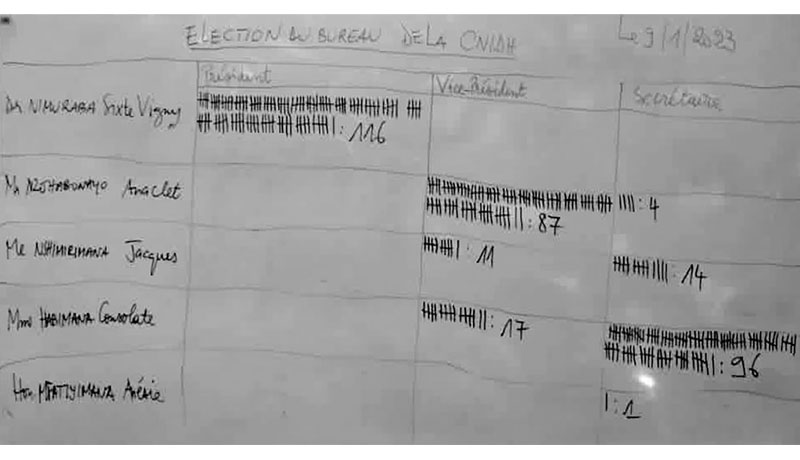 ELECTION DU BUREAU DE LA CNIDH Le 9/1/2023
Président Vice-Président Secrétaire
Dr. NIMURABA Sixte Vigny
: 116
Mr Anaclet : 4
: 87
Me NSHIMIRIMANA Jacques : 11 : 14
Mme HABIMANA Consolate : 17
: 96
Hon. : 1